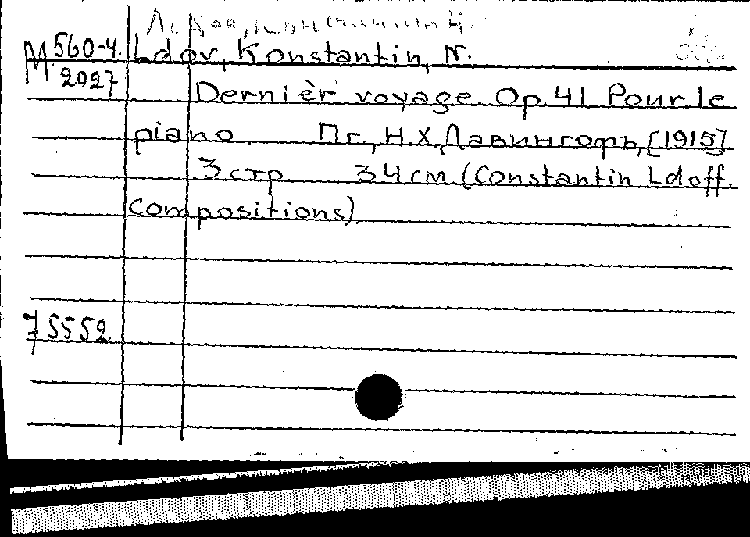 М 560-4 Ldov, Konstantin, N.
2027
Dernièr voyage Op 41 Pour le
piano Пг., Н.Х. Давингофъ, [1915]
3 стр 34 см (Constantin Ldoff.
Compositions)
75552